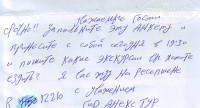 Уважаемые Гости
срочно!! Заполните эту Анкету и
принесите с собой сегодня в 19:30
и пишите какие экскурсии вы хотите
ездить? Я вас жду на ресепшне
в 1221о с Уважением
Гид Анекс Тур